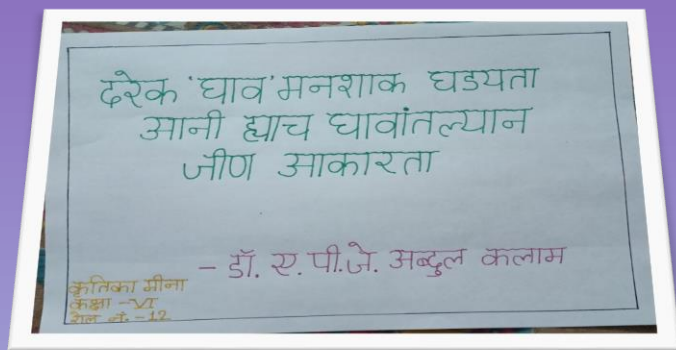 दरेक 'घाव' मनशाक घडयता
आनी ह्याच घावांतल्यान
जीण आकारता
- डॉ. ए. पी.जे. अब्दुल कलाम
कृतिका मीना
कक्षा - VI
रोल नं. - 12